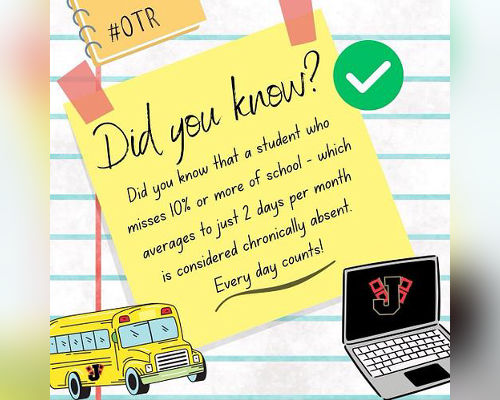 #OTR
Did you know?
Did you know that a student who
misses 10% or more of school - which
averages to just 2 days per month
is considered chronically absent.
Every day counts!
J
J